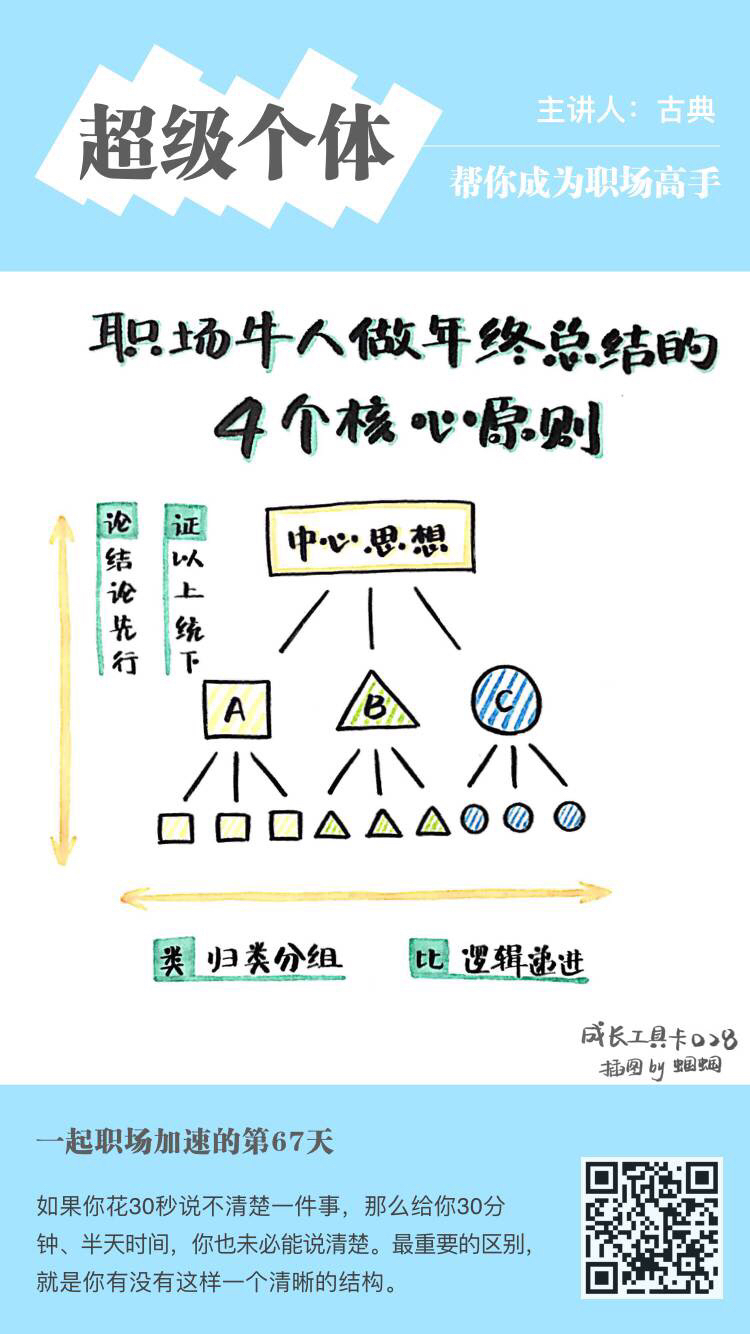 超级个体
主讲人：古典
帮你成为职场高手
职场牛人做年终总结的
4个核心原则
论 结论先行
证 以上统下
中心思想
A
B
C
类 归类分组
比 逻辑递进
成长工具卡028
插图by 蝈蝈
一起职场加速的第67天
如果你花30秒说不清楚一件事，那么给你30分
钟、半天时间，你也未必能说清楚。最重要的区别，
就是你有没有这样一个清晰的结构。